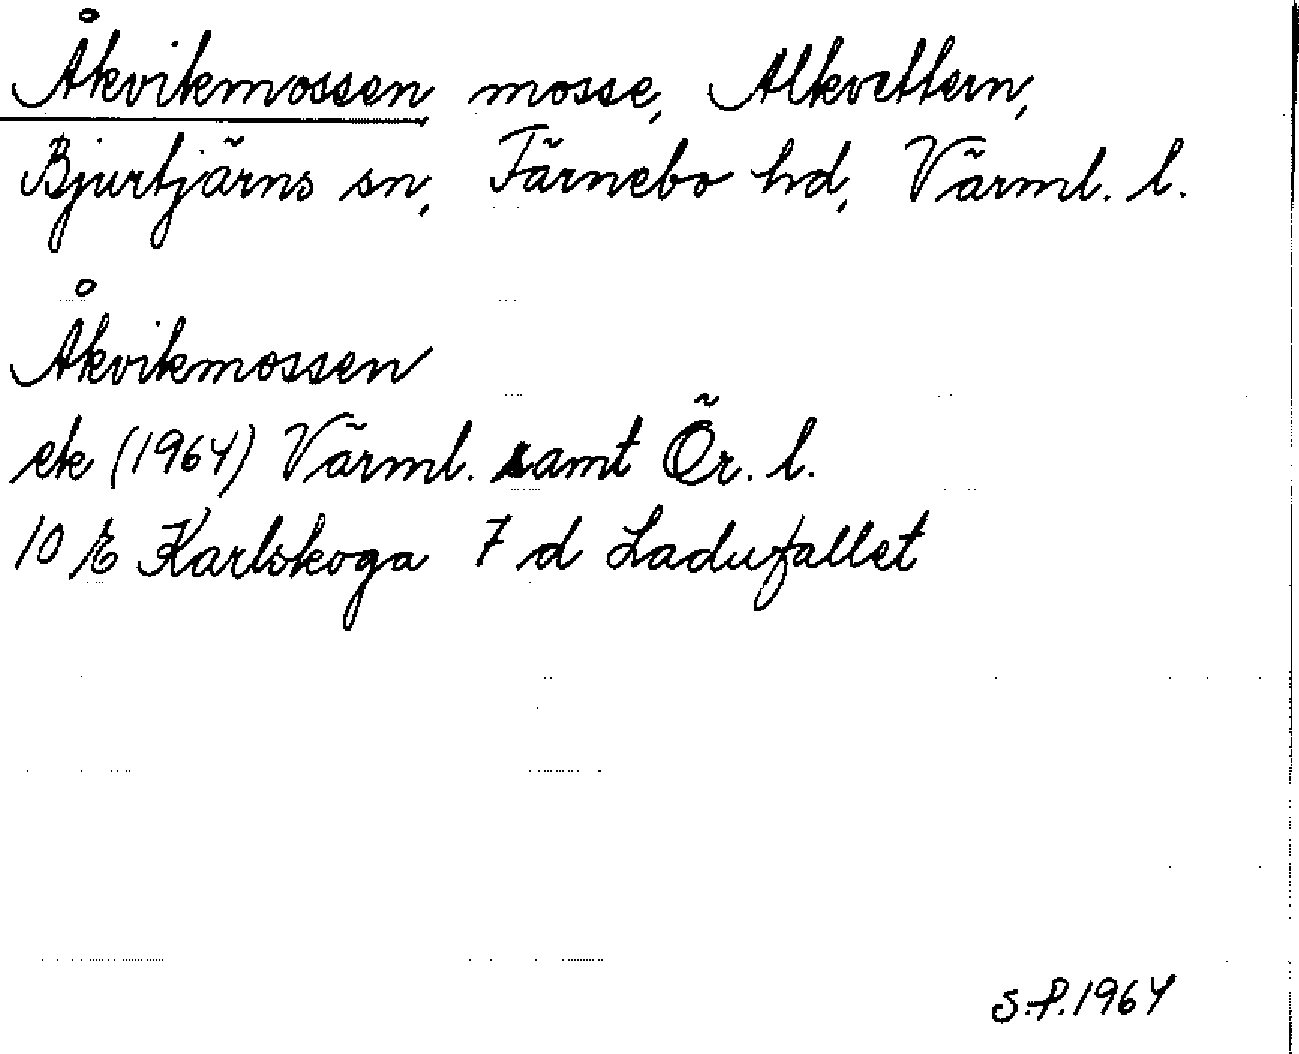 Åkvikmossen mosse, Alkvettern,
Bjurtjärns sn, Färnebo hd, Värml. l.
Åkvikmossen
ek (1964) Värml. samt Ör. l.
10 E Karlskoga 7 d Ladufallet
S.P.1964